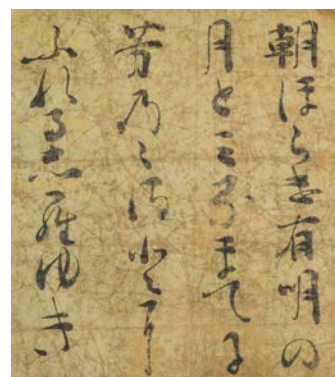 朝ほらけ有明の
月とみるまてに
芳乃ゝさとに
ふれる志羅ゆき